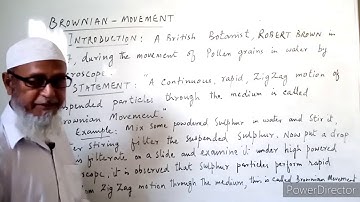 BROWNIAN-MOVEMENT
INTRODUCTION: A British Botanist, ROBERT BROWN in
7, during the movement of Pollen grains in water by
roscope.
STATEMENT: "A continuous, rapid, ZigZag motion of
spended particles through the medium is called
ownian Movement."
Example: Mix some powdered Sulphur in water and Stir it,
er stiring filter the suspended Sulphur. Now put a drop
is filterate on a slide and examine it under high powered
oscope, it is observed that Sulphur particles perform rapid
om Zig Zag motion through the medium, this is called Brownian Movement
PowerDirector